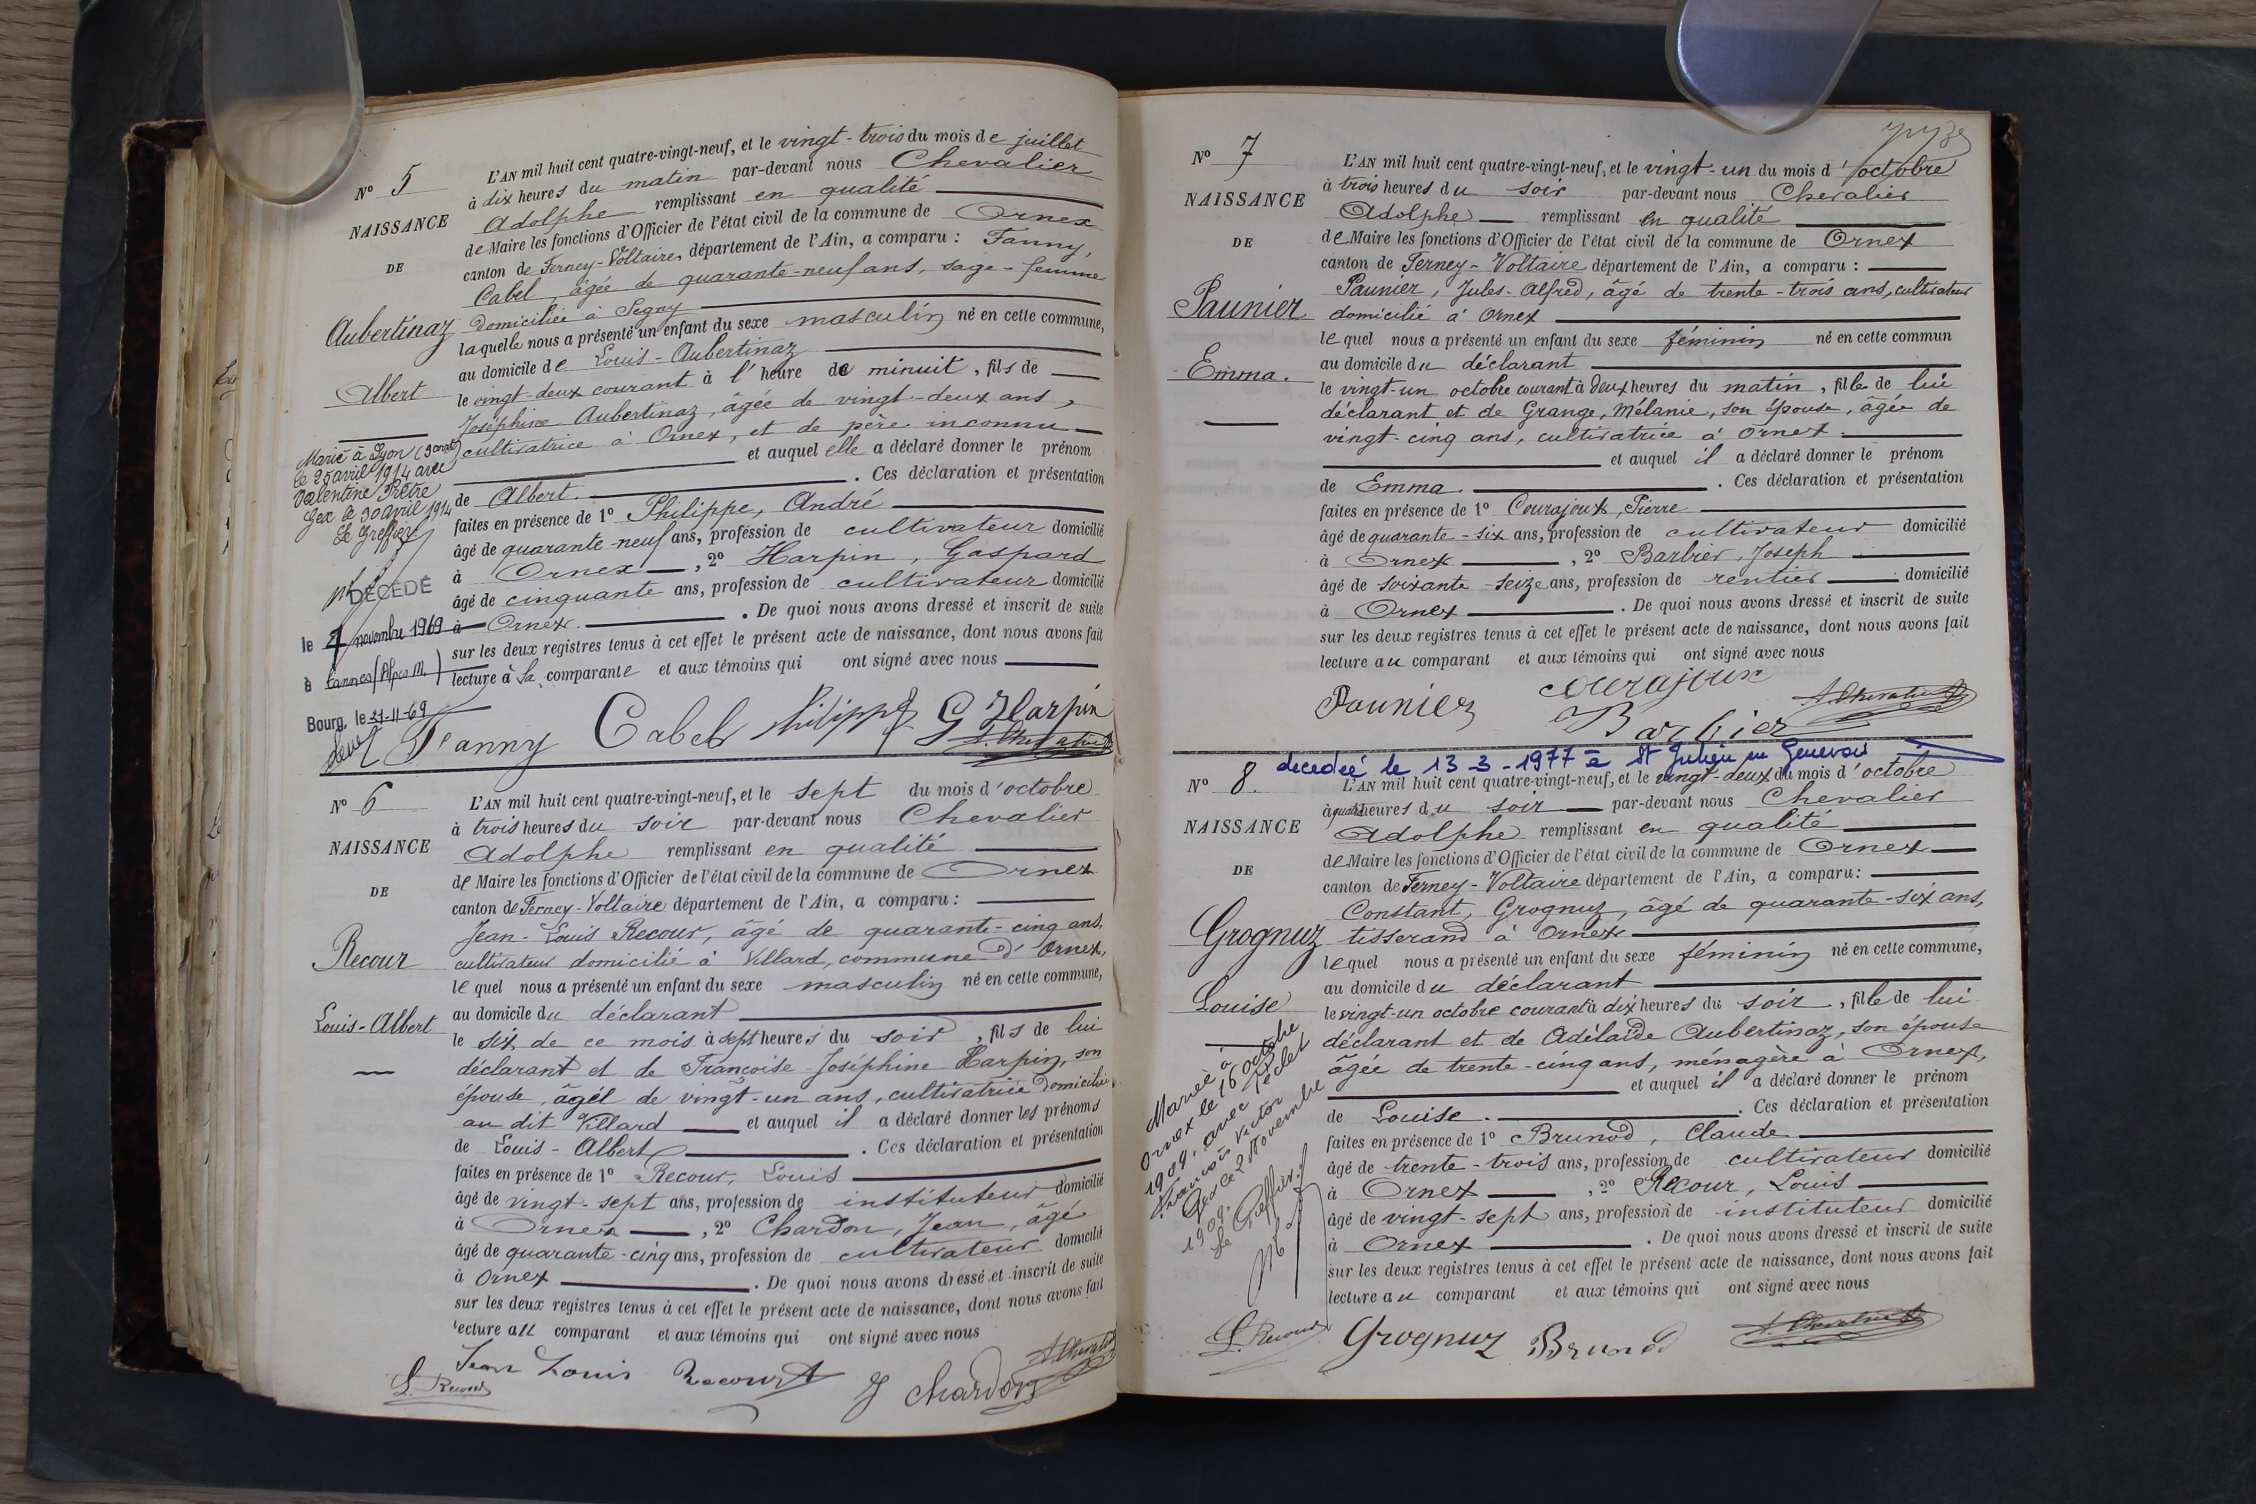 N° 5
NAISSANCE
DE
Aubertinaz
Albert
Marié à Lyon (3e arrt)
le 25 avril 1914 avec
Valentine Prêtre
Gex le 30 avril 1914
Le Greffier
DÉCÉDÉ
le novembre 1969
à Cannes (Alpes M.)
Bourg, le 21-11-69
L'AN mil huit cent quatre-vingt-neuf, et le vingt-trois du mois de juillet
à dix heures du matin par-devant nous Chevalier
Adolphe remplissant en qualité
de Maire les fonctions d'Officier de l'état civil de la commune de Ornex
canton de Ferney-Voltaire, département de l'Ain, a comparu : Fanny,
Cabel, âgée de quarante-neuf ans, sage-femme
domiciliée à Segny
laquelle nous a présenté un enfant du sexe masculin né en cette commune,
au domicile de Louis-Aubertinaz
le vingt-deux courant à l'heure de minuit, fils de
Joséphine Aubertinaz, âgée de vingt-deux ans,
cultivatrice à Ornex, et de père inconnu
et auquel elle a déclaré donner le prénom
de Albert. Ces déclaration et présentation
faites en présence de 1° Philippe, André
âgé de quarante-neuf ans, profession de cultivateur domicilié
à Ornex, 2° Harpin, Gaspard
âgé de cinquante ans, profession de cultivateur domicilié
à Ornex. De quoi nous avons dressé et inscrit de suite
sur les deux registres tenus à cet effet le présent acte de naissance, dont nous avons fait
lecture à la comparante et aux témoins qui ont signé avec nous
Fanny Cabel Philippe G Harpin
A. Chevalier
N° 6
NAISSANCE
DE
Recour
Louis-Albert
L'AN mil huit cent quatre-vingt-neuf, et le sept du mois d'octobre
à trois heures du soir par-devant nous Chevalier
Adolphe remplissant en qualité
de Maire les fonctions d'Officier de l'état civil de la commune de Ornex
canton de Ferney-Voltaire département de l'Ain, a comparu :
Jean-Louis Recour, âgé de quarante-cinq ans,
cultivateur domicilié à Villard, commune d'Ornex,
lequel nous a présenté un enfant du sexe masculin né en cette commune,
au domicile du déclarant
le six de ce mois à sept heures du soir, fils de lui
déclarant et de Françoise Joséphine Harpin, son
épouse, âgée de vingt-un ans, cultivatrice domiciliée
au dit Villard et auquel il a déclaré donner les prénoms
de Louis-Albert. Ces déclaration et présentation
faites en présence de 1° Recour, Louis
âgé de vingt-sept ans, profession de instituteur domicilié
à Ornex, 2° Chardon, Jean, âgé
âgé de quarante-cinq ans, profession de cultivateur domicilié
à Ornex. De quoi nous avons dressé et inscrit de suite
sur les deux registres tenus à cet effet le présent acte de naissance, dont nous avons fait
lecture au comparant et aux témoins qui ont signé avec nous
Jean Louis Recour J Chardon A. Chevalier
L. Recour
N° 7
NAISSANCE
DE
Paunier
Emma.
L'AN mil huit cent quatre-vingt-neuf, et le vingt-un du mois d'octobre
à trois heures du soir par-devant nous Chevalier
Adolphe remplissant en qualité
de Maire les fonctions d'Officier de l'état civil de la commune de Ornex
canton de Ferney-Voltaire département de l'Ain, a comparu :
Paunier, Jules-Alfred, âgé de trente-trois ans, cultivateur
domicilié à Ornex
lequel nous a présenté un enfant du sexe féminin né en cette commun
au domicile du déclarant
le vingt-un octobre courant à deux heures du matin, fille de lui
déclarant et de Grange, Mélanie, son épouse, âgée de
vingt-cinq ans, cultivatrice à Ornex.
et auquel il a déclaré donner le prénom
de Emma. Ces déclaration et présentation
faites en présence de 1° Courajoux, Pierre
âgé de quarante-six ans, profession de cultivateur domicilié
à Ornex, 2° Barbier, Joseph
âgé de soixante seize ans, profession de rentier domicilié
à Ornex. De quoi nous avons dressé et inscrit de suite
sur les deux registres tenus à cet effet le présent acte de naissance, dont nous avons fait
lecture au comparant et aux témoins qui ont signé avec nous
Paunier Courajoux A. Chevalier
Barbier
décédée le 13-3-1977 à St Julien en Genevois
N° 8.
NAISSANCE
DE
Grognuz
Louise
Mariée à
Ornex le 16 octobre
1909, avec Péclet
François Victor
Gex le 2 Novembre
1909.
Le Greffier
L'AN mil huit cent quatre-vingt-neuf, et le vingt-deux du mois d'octobre
à quatre heures du soir par-devant nous Chevalier
Adolphe remplissant en qualité
de Maire les fonctions d'Officier de l'état civil de la commune de Ornex
canton de Ferney-Voltaire département de l'Ain, a comparu :
Constant, Grognuz, âgé de quarante-six ans,
tisserand à Ornex
lequel nous a présenté un enfant du sexe féminin né en cette commune,
au domicile du déclarant
le vingt-un octobre courant à dix heures du soir, fille de lui
déclarant et de Adélaïde Aubertinaz, son épouse
âgée de trente-cinq ans, ménagère à Ornex,
et auquel il a déclaré donner le prénom
de Louise. Ces déclaration et présentation
faites en présence de 1° Brunod, Claude
âgé de trente-trois ans, profession de cultivateur domicilié
à Ornex, 2° Recour, Louis
âgé de vingt-sept ans, profession de instituteur domicilié
à Ornex. De quoi nous avons dressé et inscrit de suite
sur les deux registres tenus à cet effet le présent acte de naissance, dont nous avons fait
lecture au comparant et aux témoins qui ont signé avec nous
L. Recour Grognuz Brunod A. Chevalier